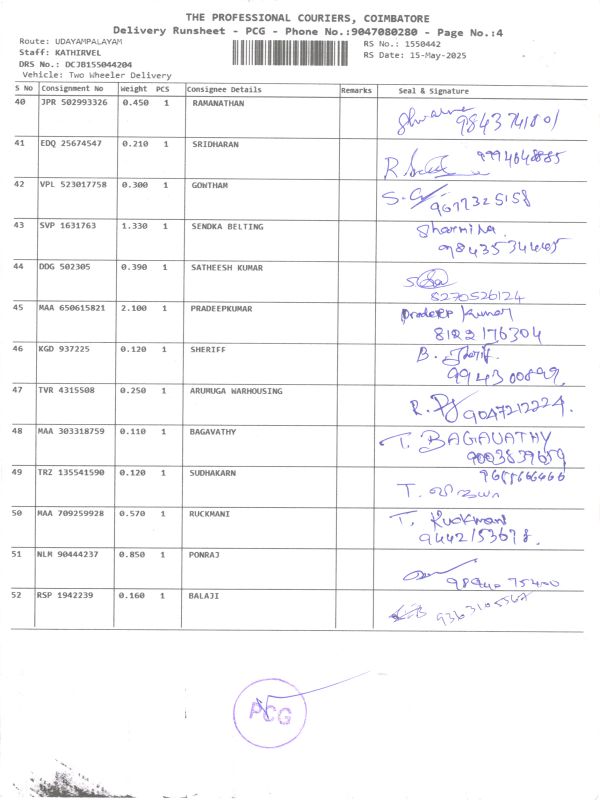 THE PROFESSIONAL COURIERS, COIMBATORE
Delivery Runsheet - PCG - Phone No.:9047080280 - Page No.:4
Route: UDAYAMPALAYAM RS No.: 1550442
Staff: KATHIRVEL RS Date: 15-May-2025
DRS No.: DCJB155044204
Vehicle: Two Wheeler Delivery
S No Consignment No Weight PCS Consignee Details Remarks Seal & Signature
40 JPR 502993326 0.450 1 RAMANATHAN
41 EDQ 25674547 0.210 1 SRIDHARAN
9994048885
42 VPL 523017758 0.300 1 GOWTHAM
9677325158
43 SVP 1631763 1.330 1 SENDKA BELTING
44 DDG 502305 0.390 1 SATHEESH KUMAR
8270526124
45 MAA 650615821 2.100 1 PRADEEPKUMAR Pradeep Kumar
8122176304
46 KGD 937225 0.120 1 SHERIFF B.
994300899
47 TVR 4315508 0.250 1 ARUMUGA WARHOUSING
9047212224.
48 MAA 303318759 0.110 1 BAGAVATHY T. BAGAVATHY
9003839659
49 TRZ 135541590 0.120 1 SUDHAKARN
50 MAA 709259928 0.570 1 RUCKMANI T. Ruckmani
9442153678.
51 NLM 90444237 0.850 1 PONRAJ
98940 75400
52 RSP 1942239 0.160 1 BALAJI
PCG